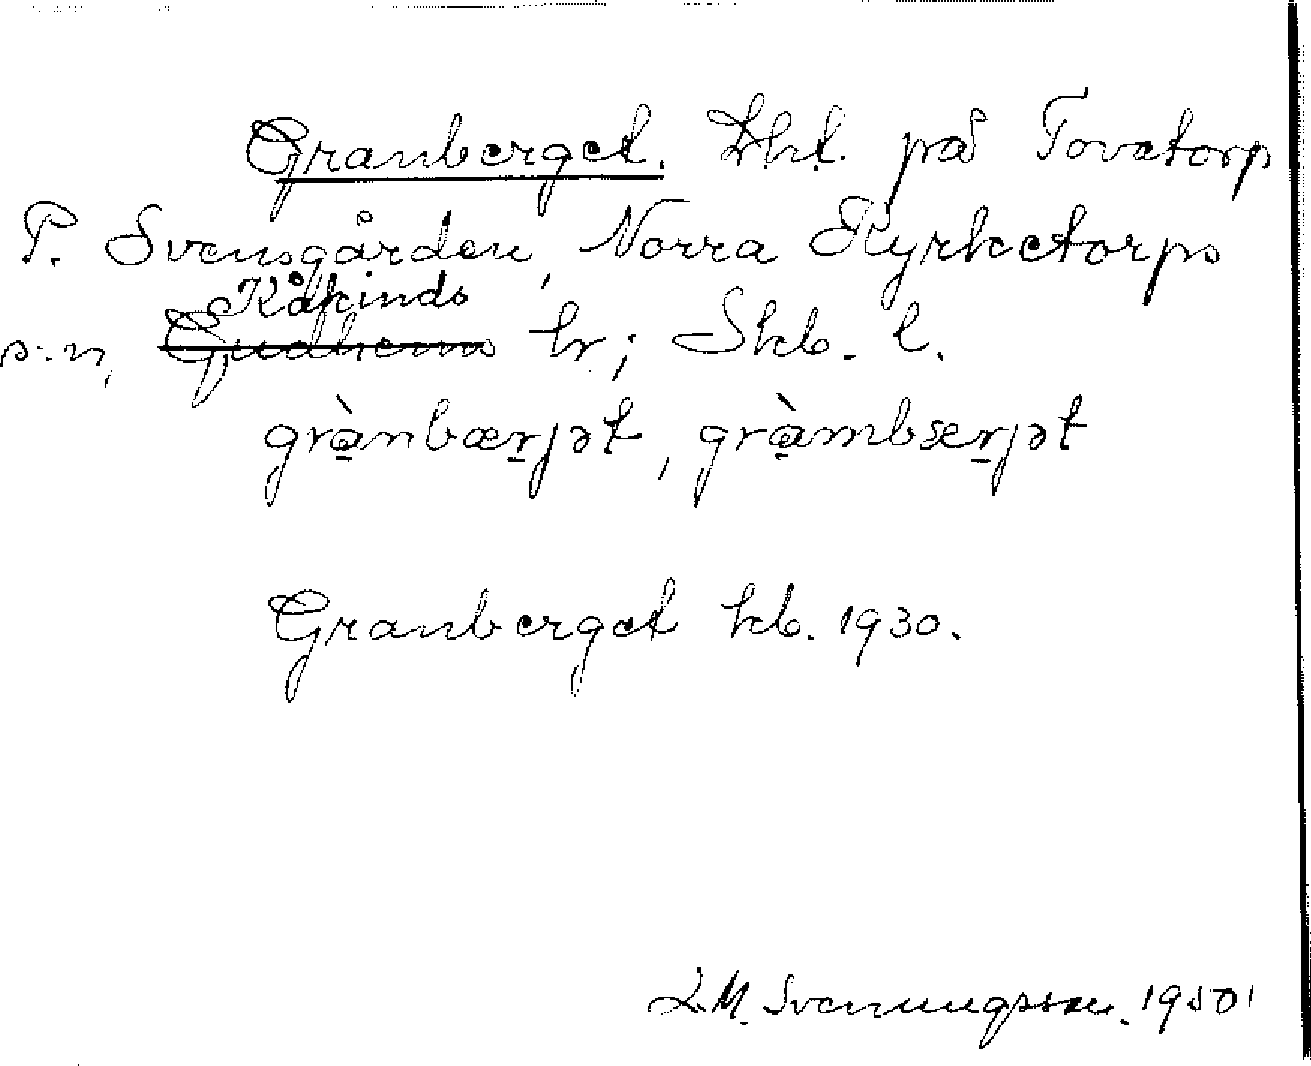 Granberget. Lht. på Tovatorp
P. Svensgården, Norra Kyrketorps
Kåkinds
s:n, Gudhems hr; Skb. l.
grànbærjət, gràmbærjət
Granberget kb. 1930.
L.M. Svenungsson. 1950